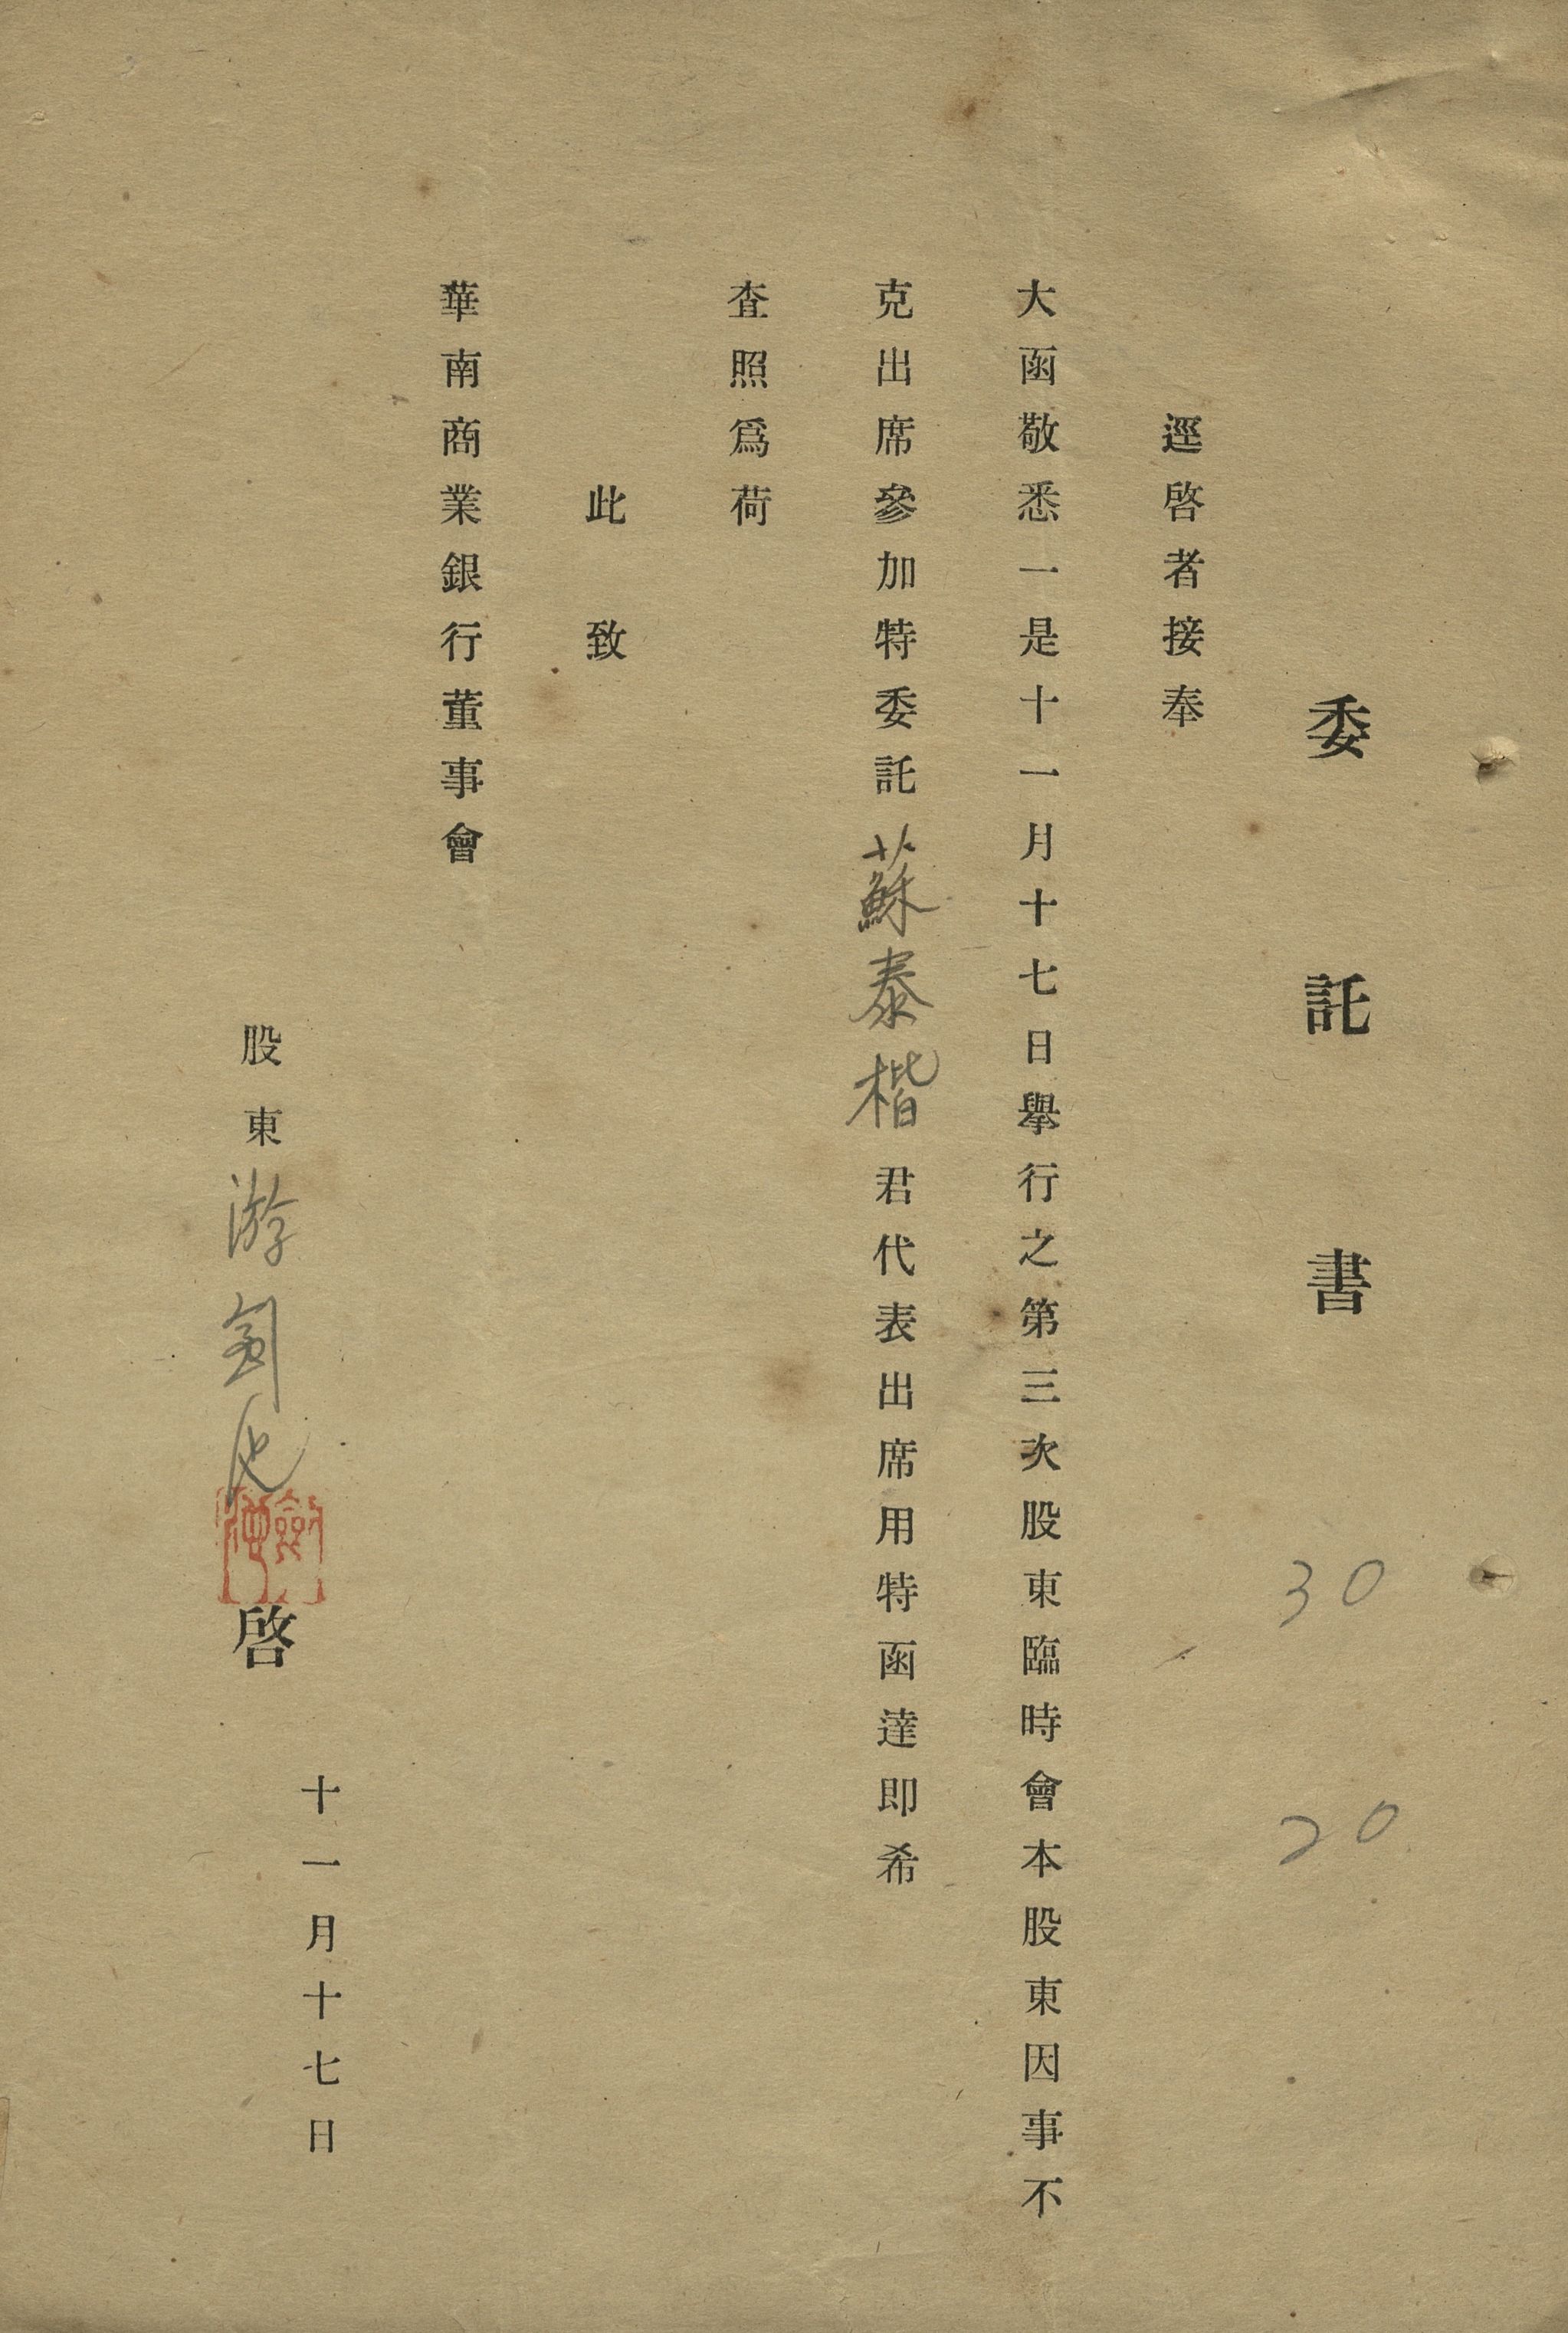 委託書
30
20
逕啓者接奉
大函敬悉一是十一月十七日舉行之第三次股東臨時會本股東因事不
克出席參加特委託蘇泰楷君代表出席用特函達即希
査照爲荷
此致
華南商業銀行董事會
十一月十七日
股東游劍池啓
劍池